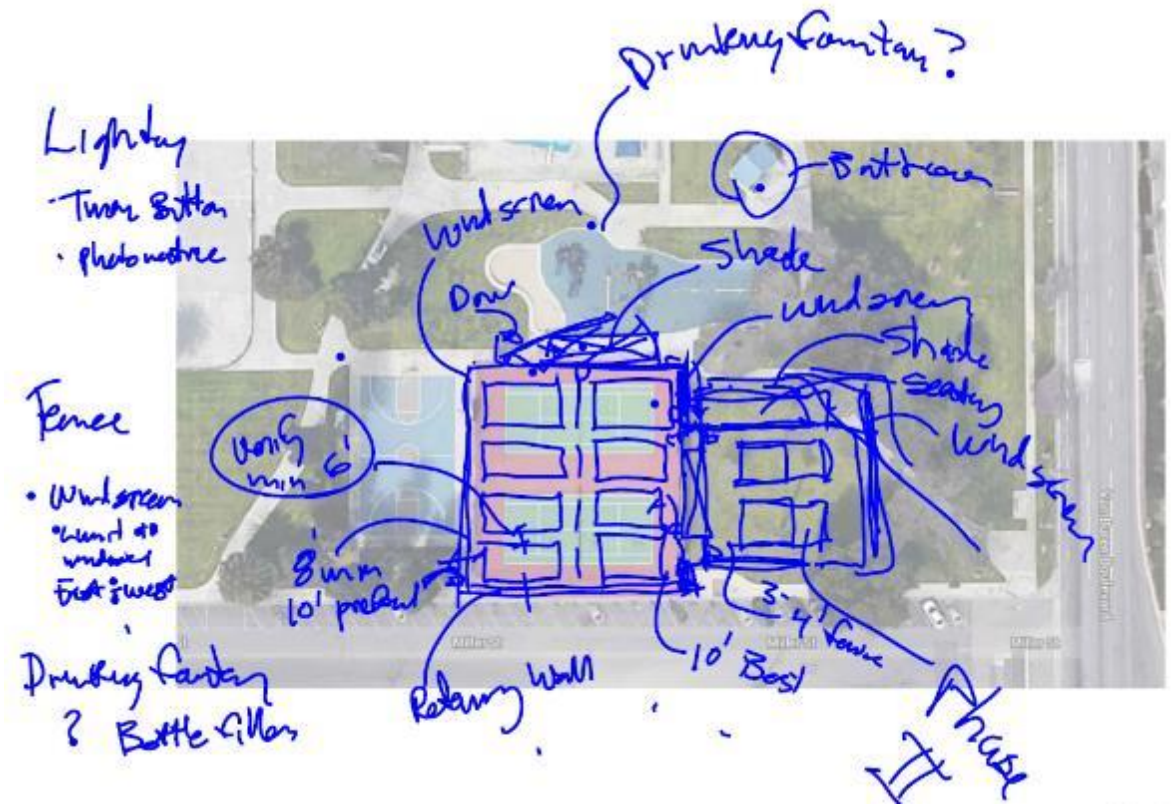 Drinking fountain?
Lighting
Timer Button
• photometric
windscreen
Shade
windscreen
Shade
Seating
windscreen
Fence
• windscreen
East & West
verify
min 6'
8' min
10' prefered
3-4' fence
10' Best
Retaining Wall
Drinking fountain
? Bottle fillers
Phase
II
Miller St
Miller St
Miller St